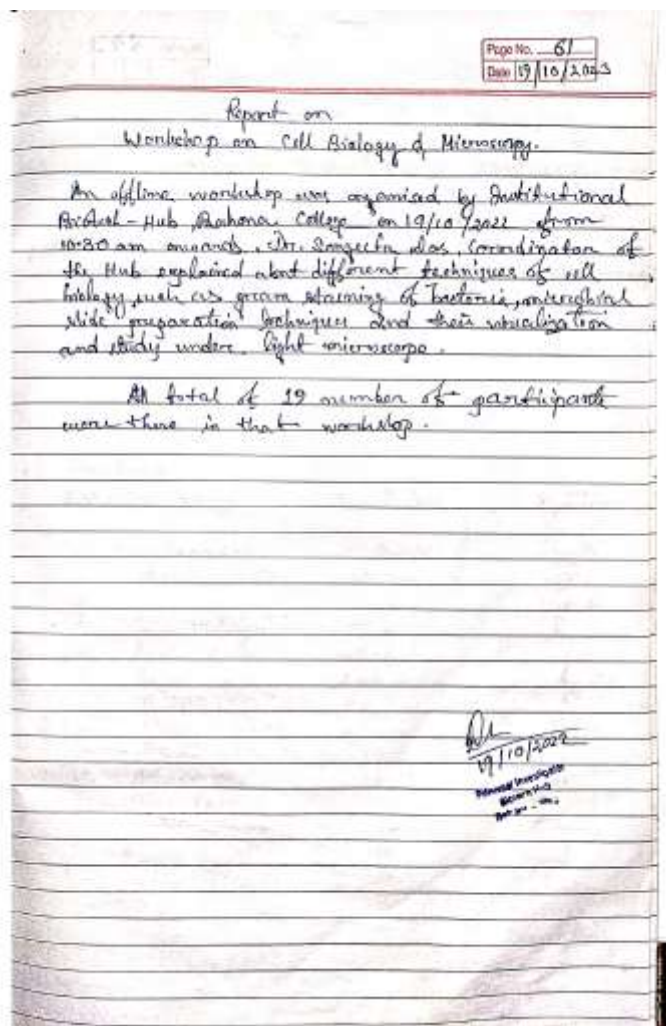 Page No. 61
Date 19/10/2023
Report on
Workshop on Cell Biology & Microscopy.
An offline workshop was organised by Institutional
Biotech-Hub, Rahona College on 19/10/2022 from
10:30 am onwards. Dr. Sangeeta Das, Coordinator of
the Hub explained about different techniques of cell
biology, such as gram staining of bacteria, microbial
slide preparation techniques and their visualization
and study under light microscope.
A total of 19 number of participants
were there in that workshop.
19/10/2022
Principal Investigator